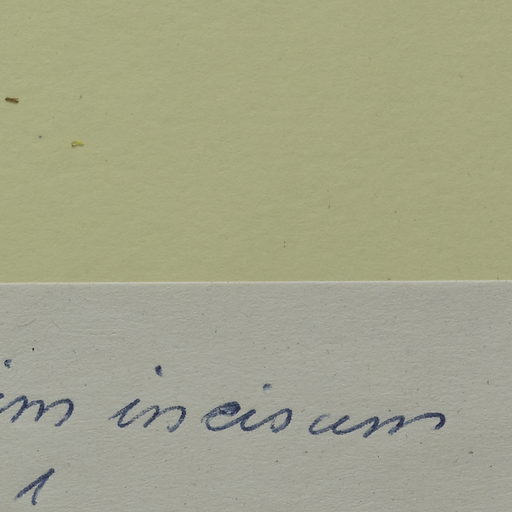 im incisum
1